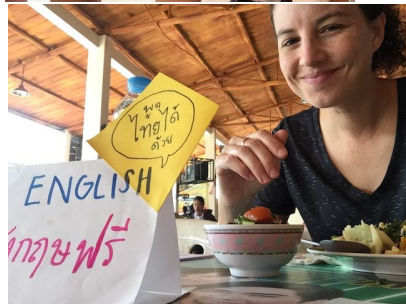 พูด
ไทยได้
ด้วย
ENGLISH
ังกฤษฟรี